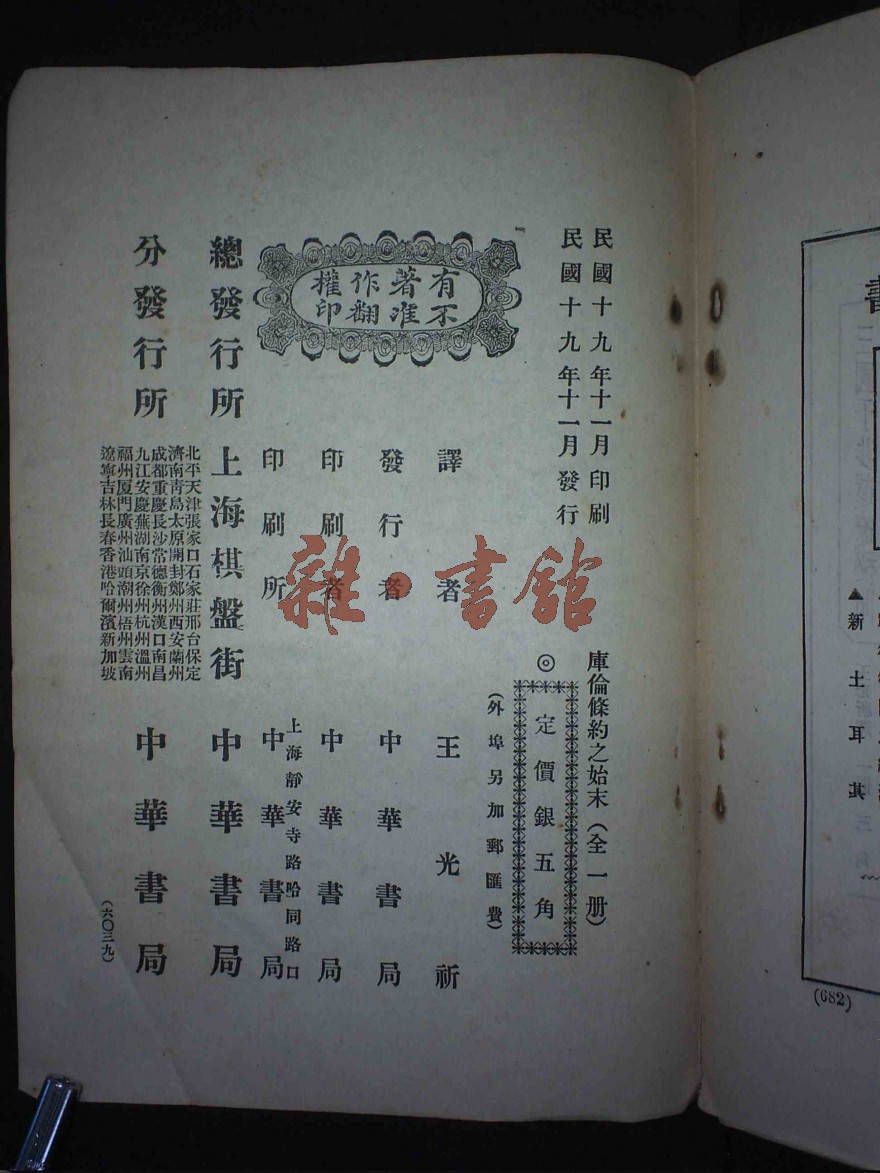 民國十九年十一月印刷
民國十九年十一月發行
庫倫條約之始末（全一册）
◎
定價銀五角
（外埠另加郵匯費）
有著作權
不准翻印
譯者 王光祈
發行者 中華書局
印刷者 中華書局
上海靜安寺路哈同路口
印刷所 中華書局
總發行所 上海棋盤街 中華書局
分發行所
北平天津張家口石家莊邢台保定
濟南青島太原開封鄭州西安蘭州
成都重慶長沙常德衡州漢口南昌
九江安慶蕪湖南京徐州杭州溫州
福州厦門廣州汕頭潮州梧州雲南
遼寧吉林長春香港哈爾濱新加坡
中華書局
（六〇三九）
雜·書館
▲新土耳其
(682)